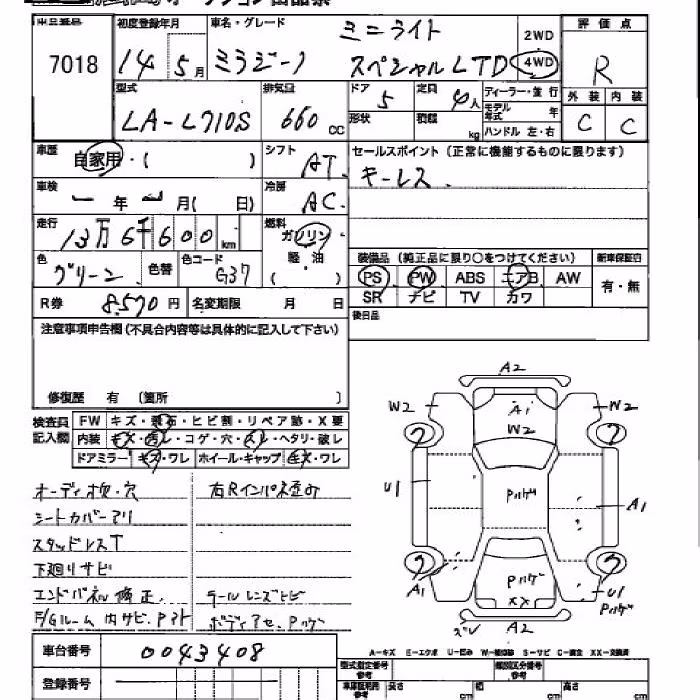 初度登録年月 車名・グレード 評価点
7018 14 5月 ミラジーノ ミニライト スペシャルLTD 2WD 4WD R
型式 排気量 ドア 定員 ディーラー・並行 外装 内装
LA-L710S 660 CC 5 4人 モデル年式 年 C C
形状 積載 kg ハンドル 左・右
車歴 自家用・( ) シフト AT セールスポイント(正常に機能するものに限ります)
車検 年 月( 日) 冷房 AC キーレス
走行 13万6千600km 燃料 ガソリン
軽・油
色 グリーン 色替 色コード G37 ( )
装備品(純正品に限り○をつけてください) 新車保証書
PS PW ABS エアB AW 有・無
SR ナビ TV カワ
R券 8,570円 名変期限 月 日 後日品
注意事項申告欄(不具合内容等は具体的に記入して下さい)
修復歴 有 (箇所 )
検査員 FW キズ・飛石・ヒビ割・リペア跡・X要
記入欄 内装 キズ・汚レ・コゲ・穴・スレ・ヘタリ・破レ
ドアミラー キズ・ワレ ホイール・キャップ キズ・ワレ
オーディオ欠・穴 右Rインパネ歪み
シートカバーアリ
スタッドレスT
下廻りサビ
エンドパネル修正 テールレンズヒビ
F/Gルーム内サビ、Pマト ボディアセ、Pハゲ
A2
W2 A1 W2
W2
U1 Pハゲ A1
A1 Pハゲ U1
XX Pハゲ
ズレ A2
A-キズ E-エクボ U-凹み W-補修跡 S-サビ C-腐食 XX-交換済
車台番号 0043408 型式指定番号 参考 類別区分番号 参考
登録番号 車庫証明用 参考 長さ cm 幅 cm 高さ cm